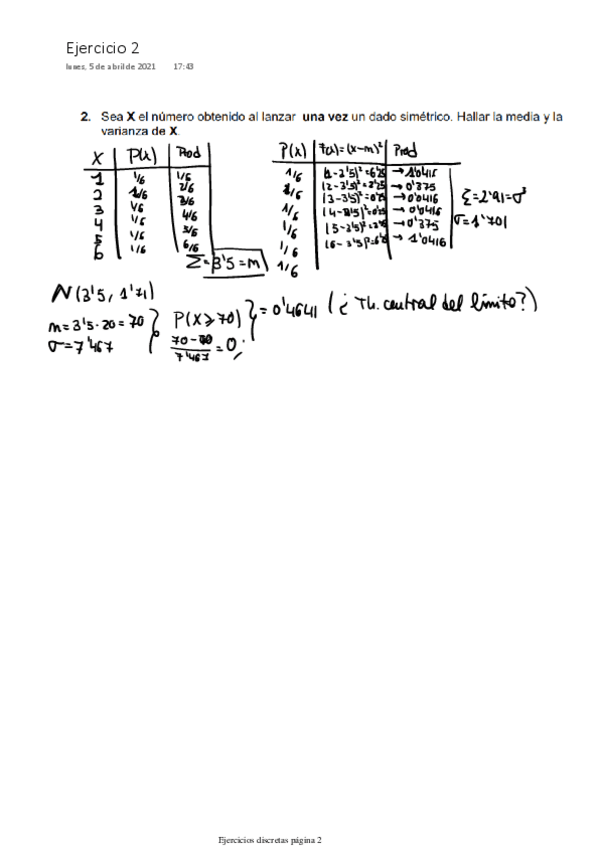 Ejercicio 2
lunes, 5 de abril de 2021 17:43
2. Sea X el número obtenido al lanzar una vez un dado simétrico. Hallar la media y la
varianza de X.
X | P(x) | Prod
1 1/6 1/6
2 1/6 2/6
3 1/6 3/6
4 1/6 4/6
5 1/6 5/6
6 1/6 6/6
Σ=3'5=m
P(x) | f(x)=(x-m)² | Prod
1/6 (1-3'5)²=6'25 → 1'0416
1/6 (2-3'5)²=2'25 → 0'375
1/6 (3-3'5)²=0'25 → 0'0416
1/6 (4-3'5)²=0'25 → 0'0416
1/6 (5-3'5)²=2'25 → 0'375
1/6 (6-3'5)²=6'25 → 1'0416
1/6
Σ=2'91=σ²
σ=1'701
N(3'5, 1'71)
m=3'5·20=70
σ=7'467
P(X≥70)
70-70
7'467
=0
=0'4641 (¿Th. central del límite?)
Ejercicios discretas página 2